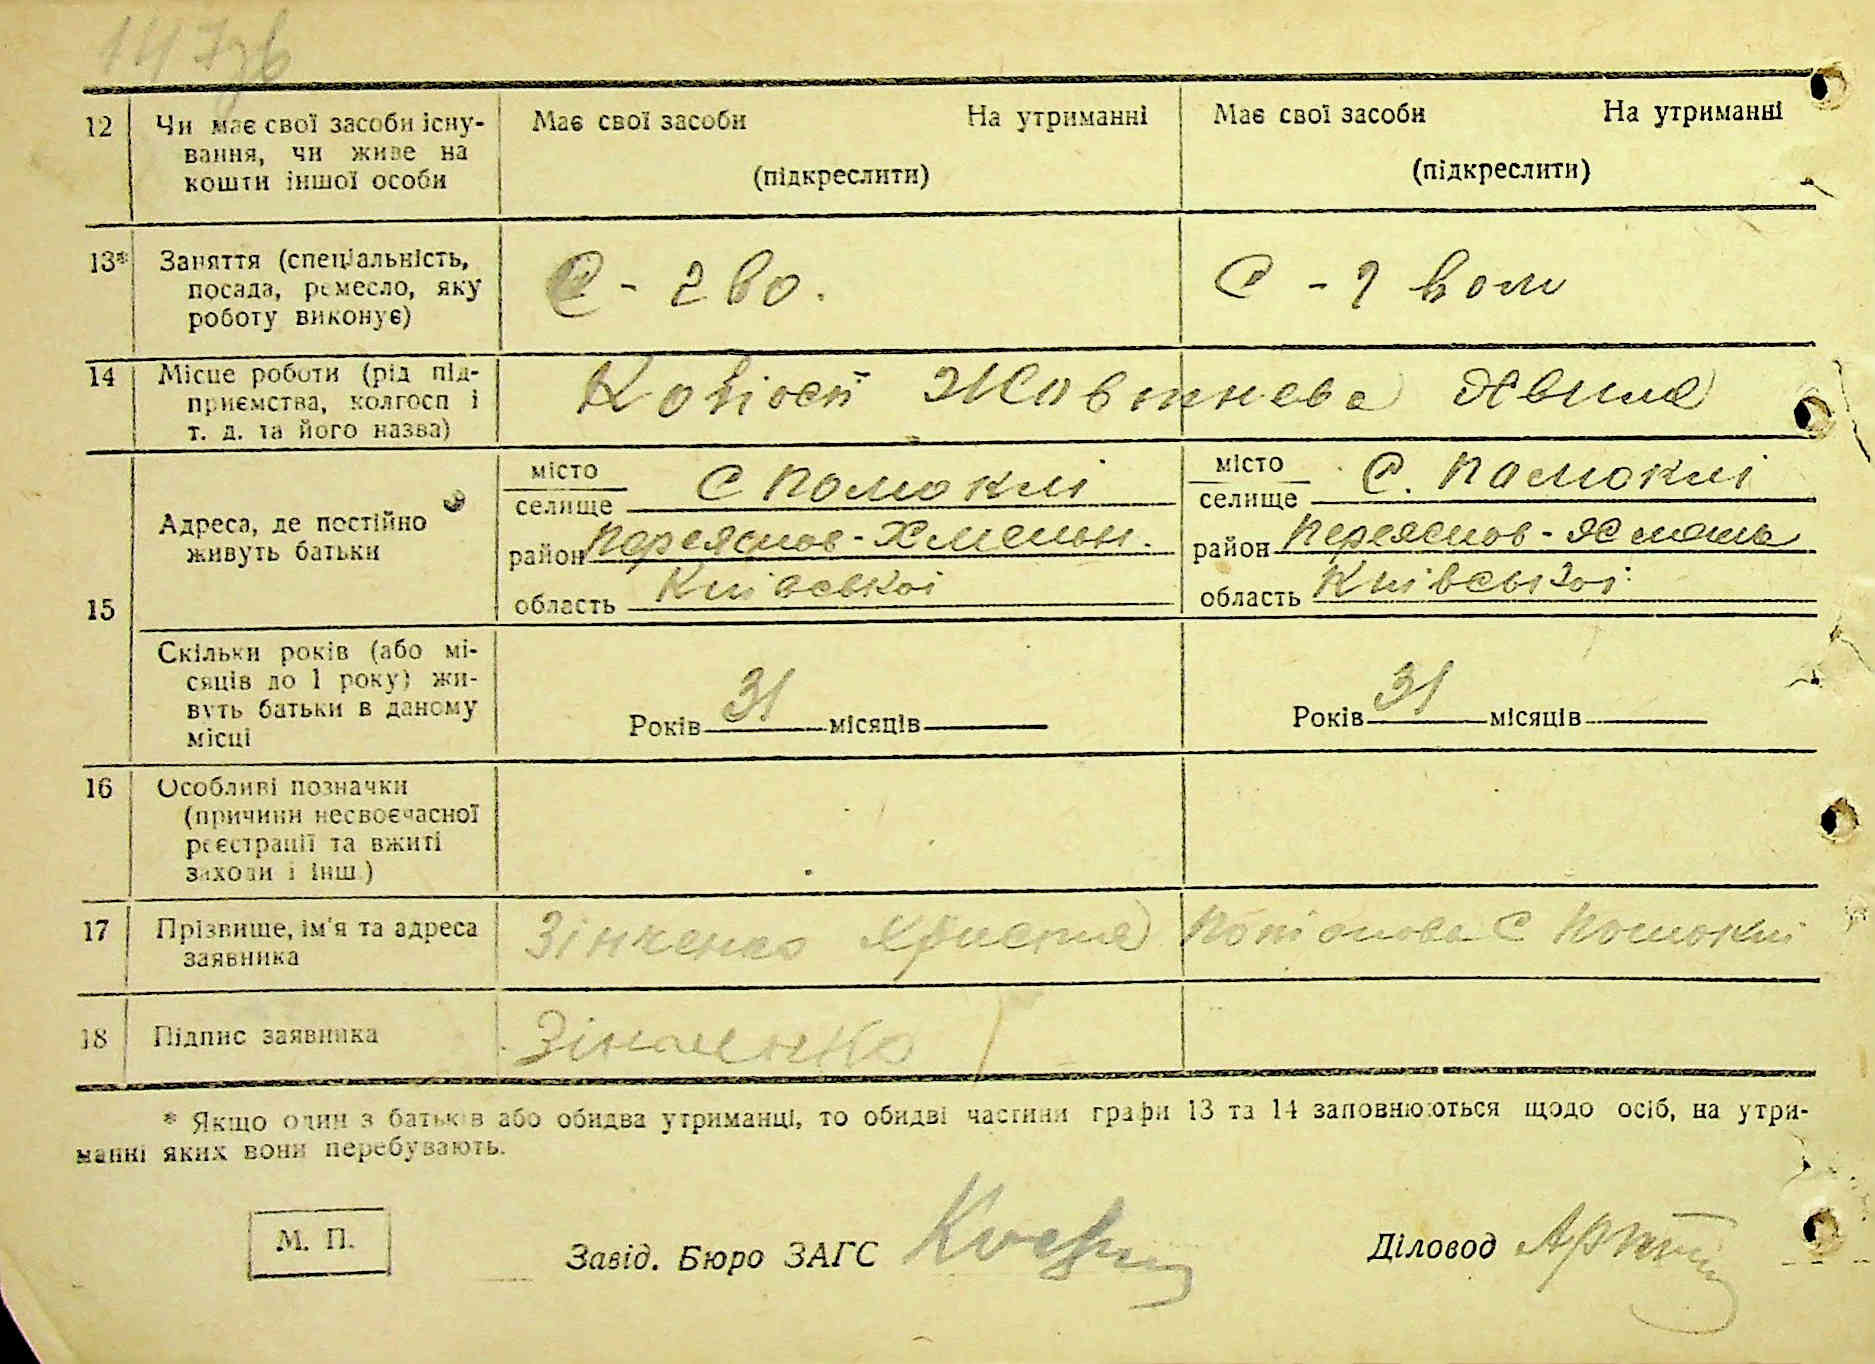 147зв
12 Чи має свої засоби існу-
вання, чи живе на
кошти іншої особи
Має свої засоби На утриманні
(підкреслити)
Має свої засоби На утриманні
(підкреслити)
13* Заняття (спеціальність,
посада, ремесло, яку
роботу виконує)
С - г во.
С - г вом
14 Місце роботи (рід під-
приємства, колгосп і
т. д. та його назва)
Жовтнева Хвиля
15
Адреса, де постійно
живуть батьки
місто
селище С Помоклі
район Переяслов-Хмельн.
область Київської
місто
селище С. Помоклі
район Переяслов-Хмель
область Київської
Скільки років (або мі-
сяців до 1 року) жи-
вуть батьки в даному
місці
Років 31 місяців
Років 31 місяців
16 Особливі позначки
(причини несвоєчасної
реєстрації та вжиті
заходи і інш.)
17 Прізвище, ім'я та адреса
заявника
Зінченко Христя С Помоклі
18 Підпис заявника
Зінченко
* Якщо один з батьків або обидва утриманці, то обидві частини графи 13 та 14 заповнюються щодо осіб, на утри-
манні яких вони перебувають.
М. П.
Завід. Бюро ЗАГС
Діловод